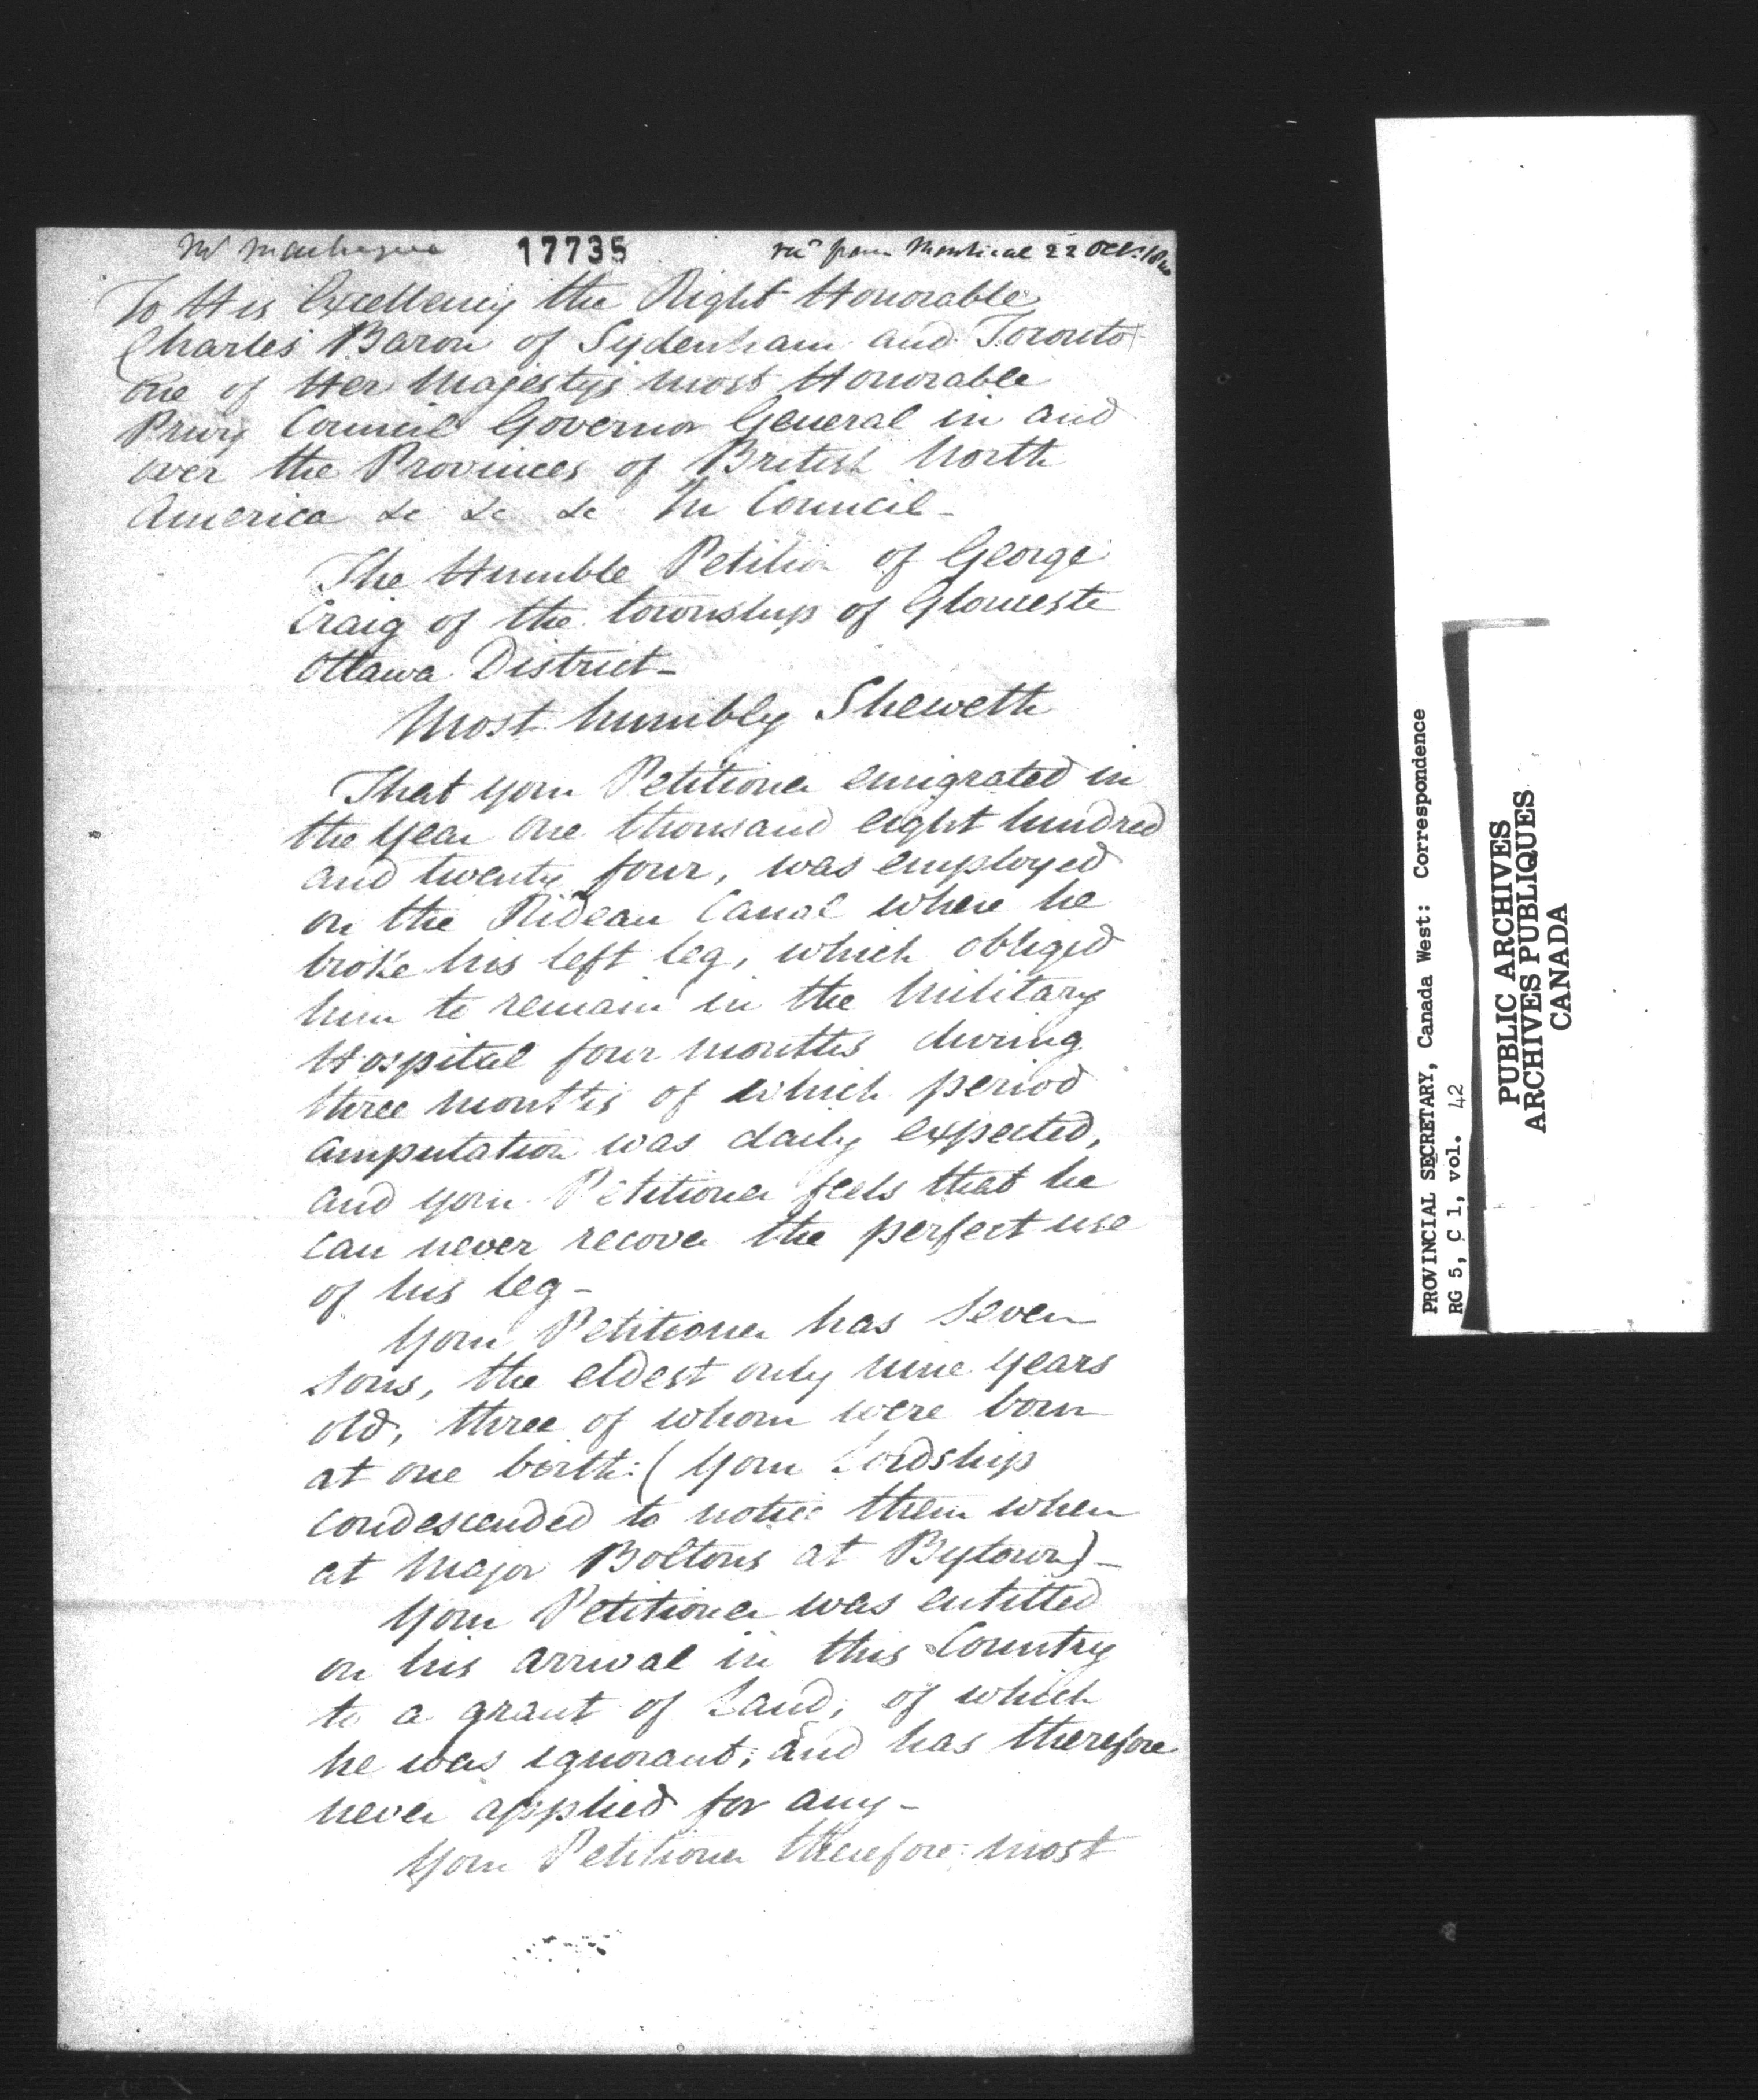 17735
recd from Montreal 22 Oct: 1840
To His Excellency the Right Honorable
Charles Baron of Sydenham and Toronto
one of Her Majestys most Honorable
Privy Council Governor General in and
over the Provinces of British North
America &c &c &c In Council -
The Humble Petition of George
Craig of the township of Glouceste
Ottawa District -
Most humbly Sheweth
That your Petitioner emigrated in
the year one thousand eight hundred
and twenty four, was employed
on the Rideau Canal where he
broke his left leg, which obliged
him to remain in the Military
Hospital four months during
three months of which period
amputation was daily expected,
and your Petitioner feels that he
can never recover the perfect use
of his leg -
Your Petitioner has seven
sons, the eldest only nine years
old, three of whom were born
at one birth: (Your Lordship
condescended to notice them when
at Major Boltons at Bytown) -
Your Petitioner was entitled
on his arrival in this Country
to a grant of Land, of which
he was ignorant; and has therefore
never applied for any -
Your Petitioner therefore most
PROVINCIAL SECRETARY, Canada West: Correspondence
RG 5, C 1, vol. 42
PUBLIC ARCHIVES
ARCHIVES PUBLIQUES
CANADA